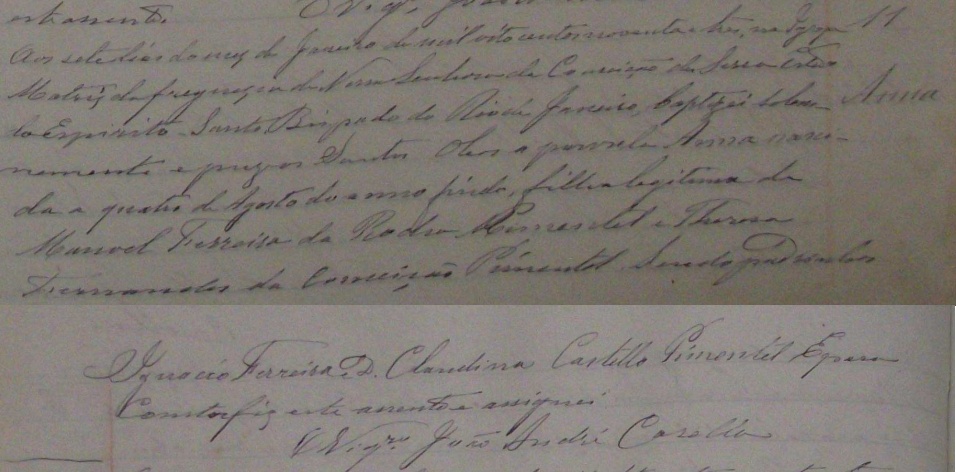 este assento. O Vigº João
Aos sete dias do mez de Janeiro de mil oito centos noventa e tres, na Igreja 11
Matriz da freguezia de Nossa Senhora da Conceição da Serra Estado
do Espirito-Santo Bispado do Rio de Janeiro, baptizei solem- Anna
nemente e puz os Santos Oleos a parvula Anna nasci-
da a quatro de Agosto do anno findo, filha legitima de
Manoel Ferreira da Rocha Pimentel e Thereza
Fernandes da Conceição Pimentel. Sendo padrinhos
Ignacio Ferreira e D. Claudina Castello Pimentel E para
Constar fiz este assento e assignei
O Vigrº João André Casella